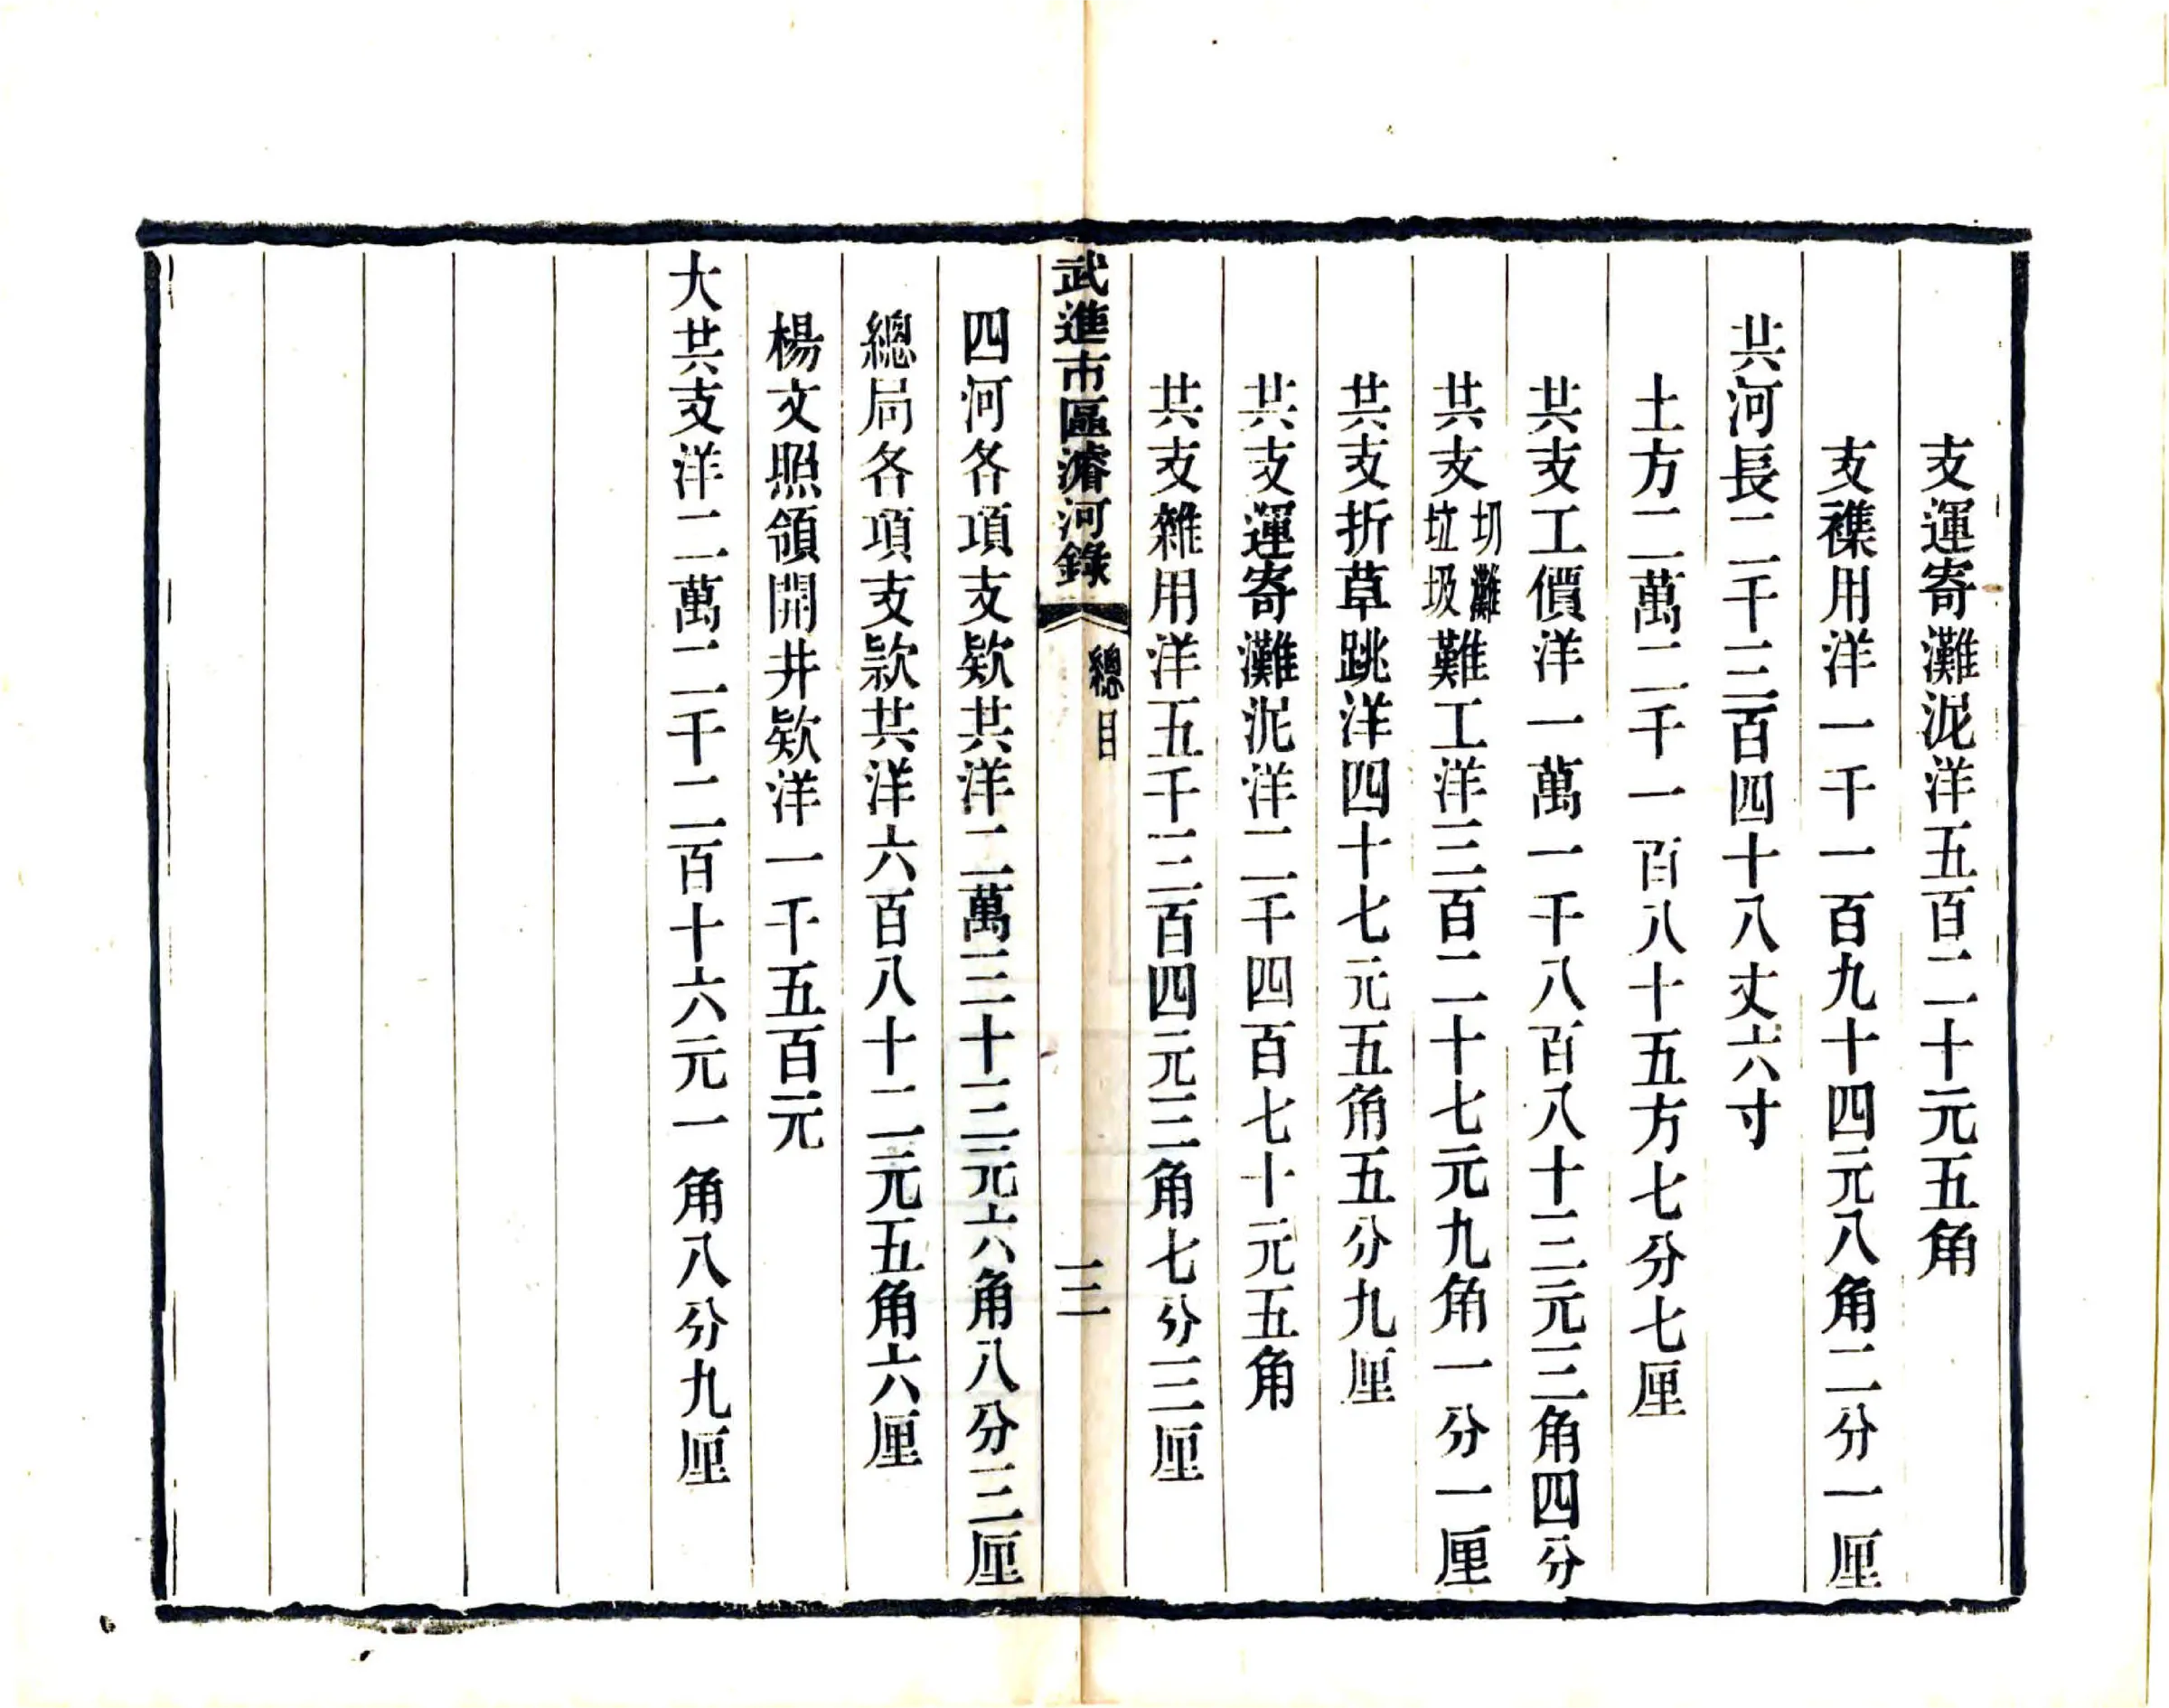 支運寄灘泥洋五百二十元五角
支襍用洋一千一百九十四元八角二分一厘
共河長二千三百四十八丈六寸
土方二萬二千一百八十五方七分七厘
共支工價洋一萬一千八百八十三元三角四分
共支切灘垃圾難工洋三百二十七元九角一分一厘
共支折草跳洋四十七元五角五分九厘
共支運寄灘泥洋二千四百七十元五角
共支雜用洋五千三百四元三角七分三厘
武進市區濬河錄 總目 三
四河各項支欵共洋二萬三十三元六角八分三厘
總局各項支款共洋六百八十二元五角六厘
楊文照領開井欵洋一千五百元
大共支洋二萬二千二百十六元一角八分九厘